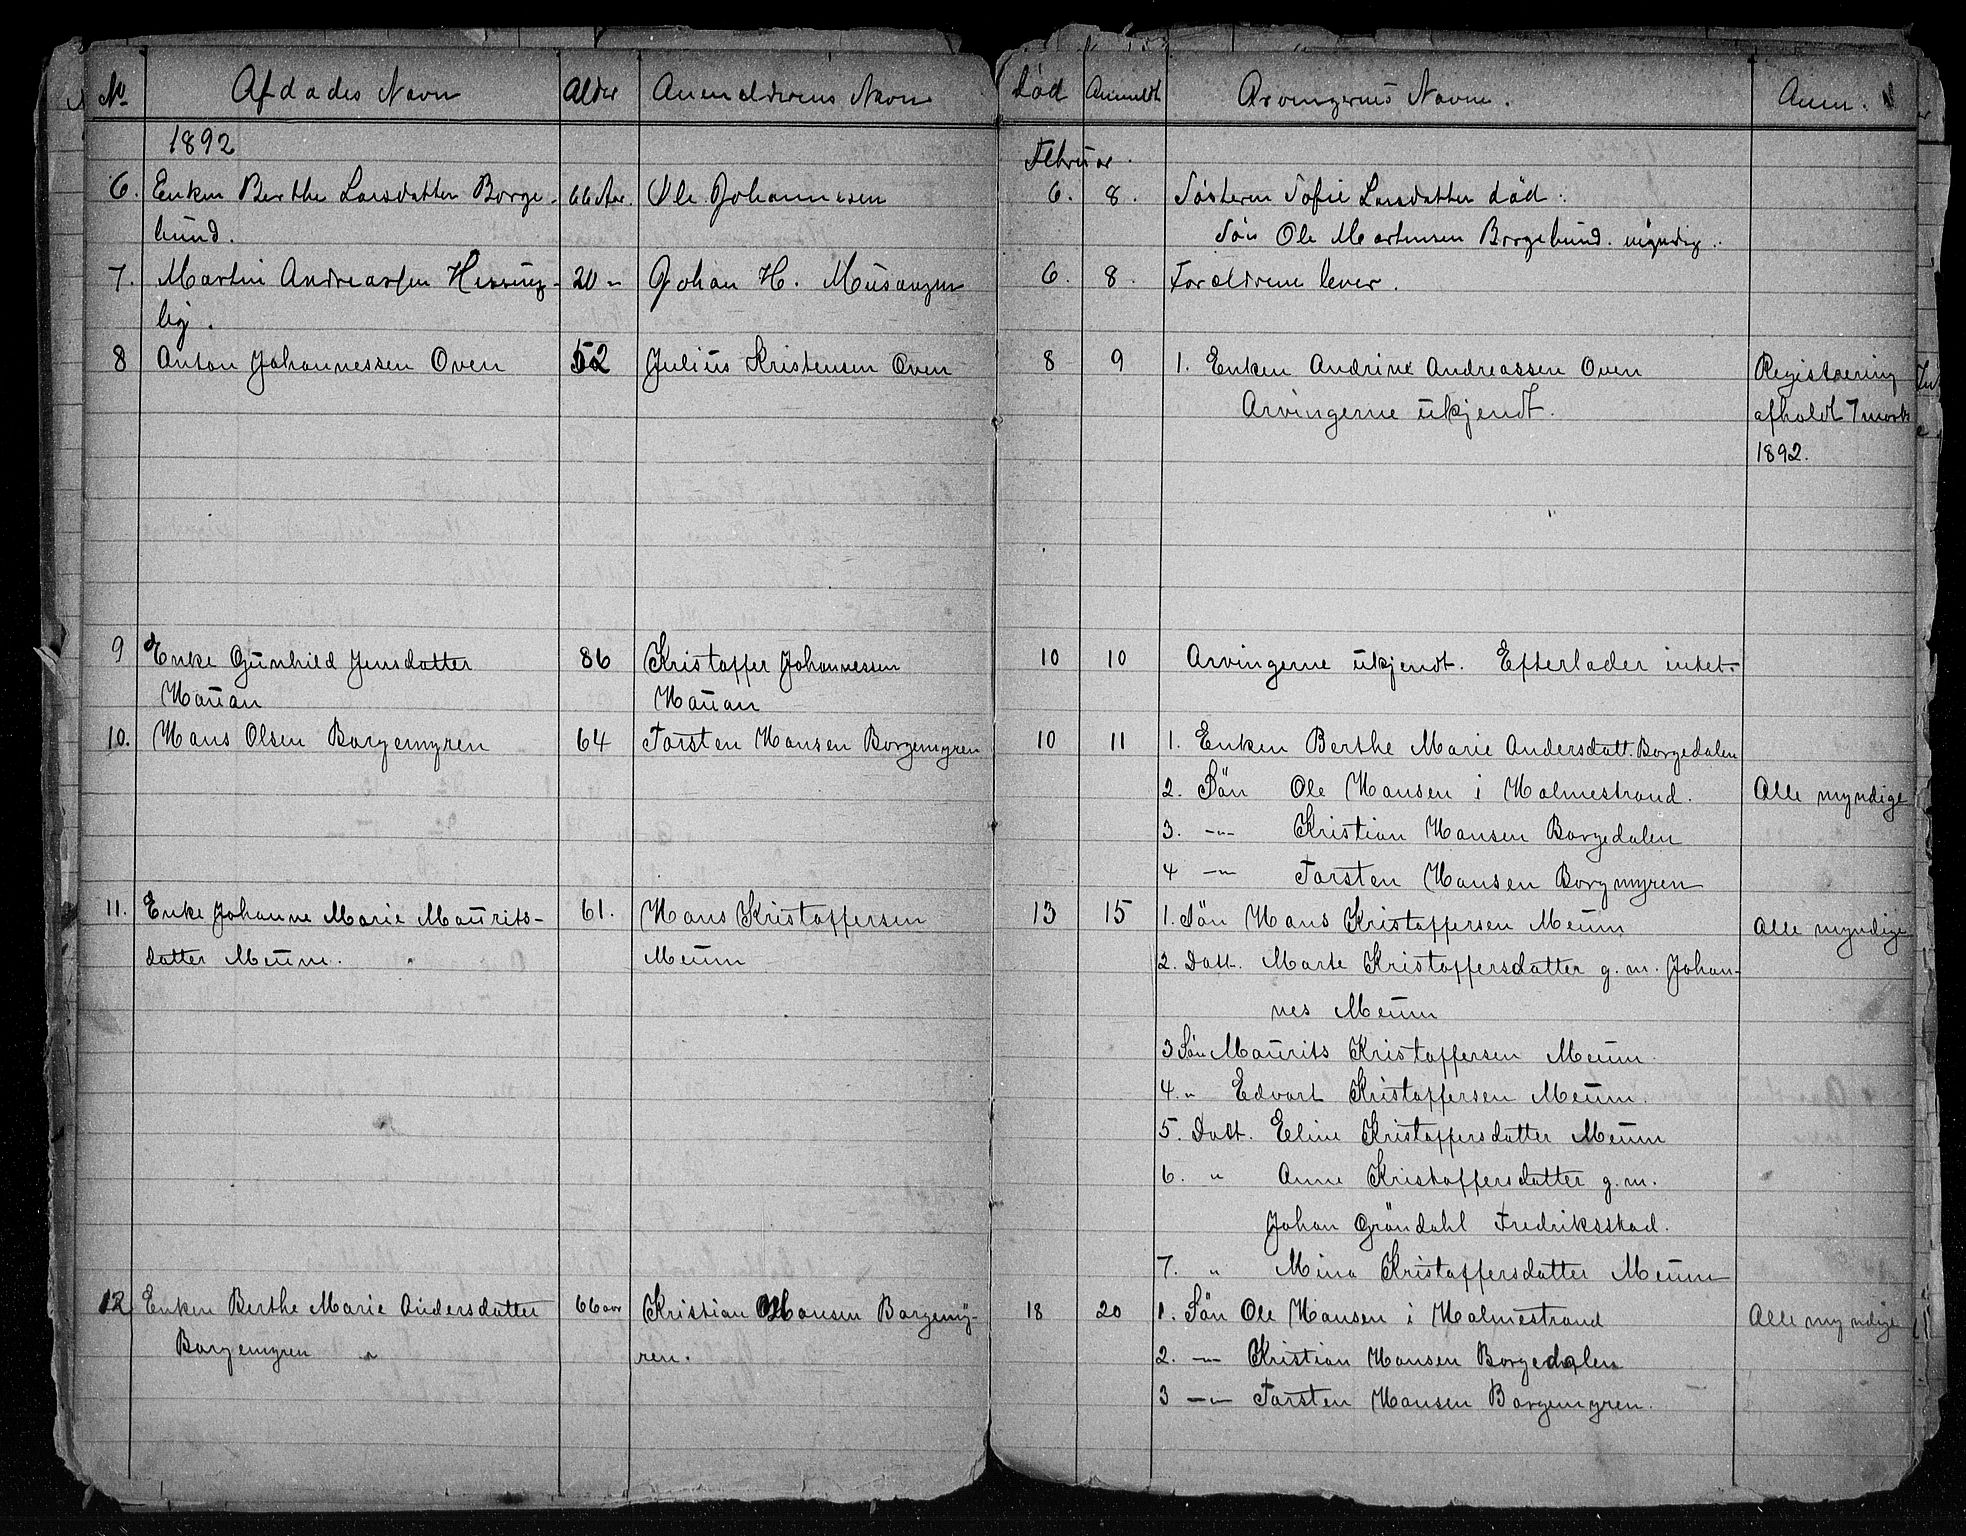 No Afdødes Navn Alder Anmelderens Navn Død Anmeldt Arvingernes Navne. Anm.
1892 Februar.
6. Enken Berthe Larsdatter Borge- 66 Aar. Ole Johannesen 6. 8. Søsteren Sofie Larsdatter død.
bund. Søn Ole Martensen Borgebund. myndig.
7. Martin Andreassen 20 " Johan H. 6. 8. Forældrene lever.
by.
8 Anton Johannessen Oven 52 Julius Kristensen Oven 8 9 1. Enken Andrine Andreassen Oven Registrering
Arvingerne ukjendt. afholdt 7 marts
1892.
9 Enke Gunhild Jensdatter 86 Kristoffer Johannessen 10 10 Arvingerne ukjendt. Efterlader intet.
Hauan Hauan
10. Hans Olsen Borgemyren 64 Torsten Hansen Borgemyren 10 11 1. Enken Berthe Marie Andersdatt. Borgedalen
2. Søn Ole Hansen i Holmestrand. Alle myndige
3. -"- Kristian Hansen Borgedalen
4 -"- Torsten Hansen Borgmyren
11. Enke Johanne Marie Maurits- 61. Hans Kristoffersen 13 15 1. Søn Hans Kristoffersen Meum Alle myndige
datter Meum. Meum 2. Datt. Marte Kristoffersdatter g. m. Johan-
nes Meum
3 Søn Maurits Kristoffersen Meum.
4. " Edvart Kristoffersen Meum.
5. Datt. Eline Kristoffersdatter Meum
6. " Anne Kristoffersdatter g. m.
Johan Gröndahl Fredriksstad.
7. " Mina Kristoffersdatter Meum
12. Enken Berthe Marie Andersdatter 66 aar Kristian Hansen Borgemy- 18 20 1. Søn Ole Hansen i Holmestrand Alle myndige
Borgemyren ren. 2. -"- Kristian Hansen Borgedalen
3 -"- Torsten Hansen Borgemyren.